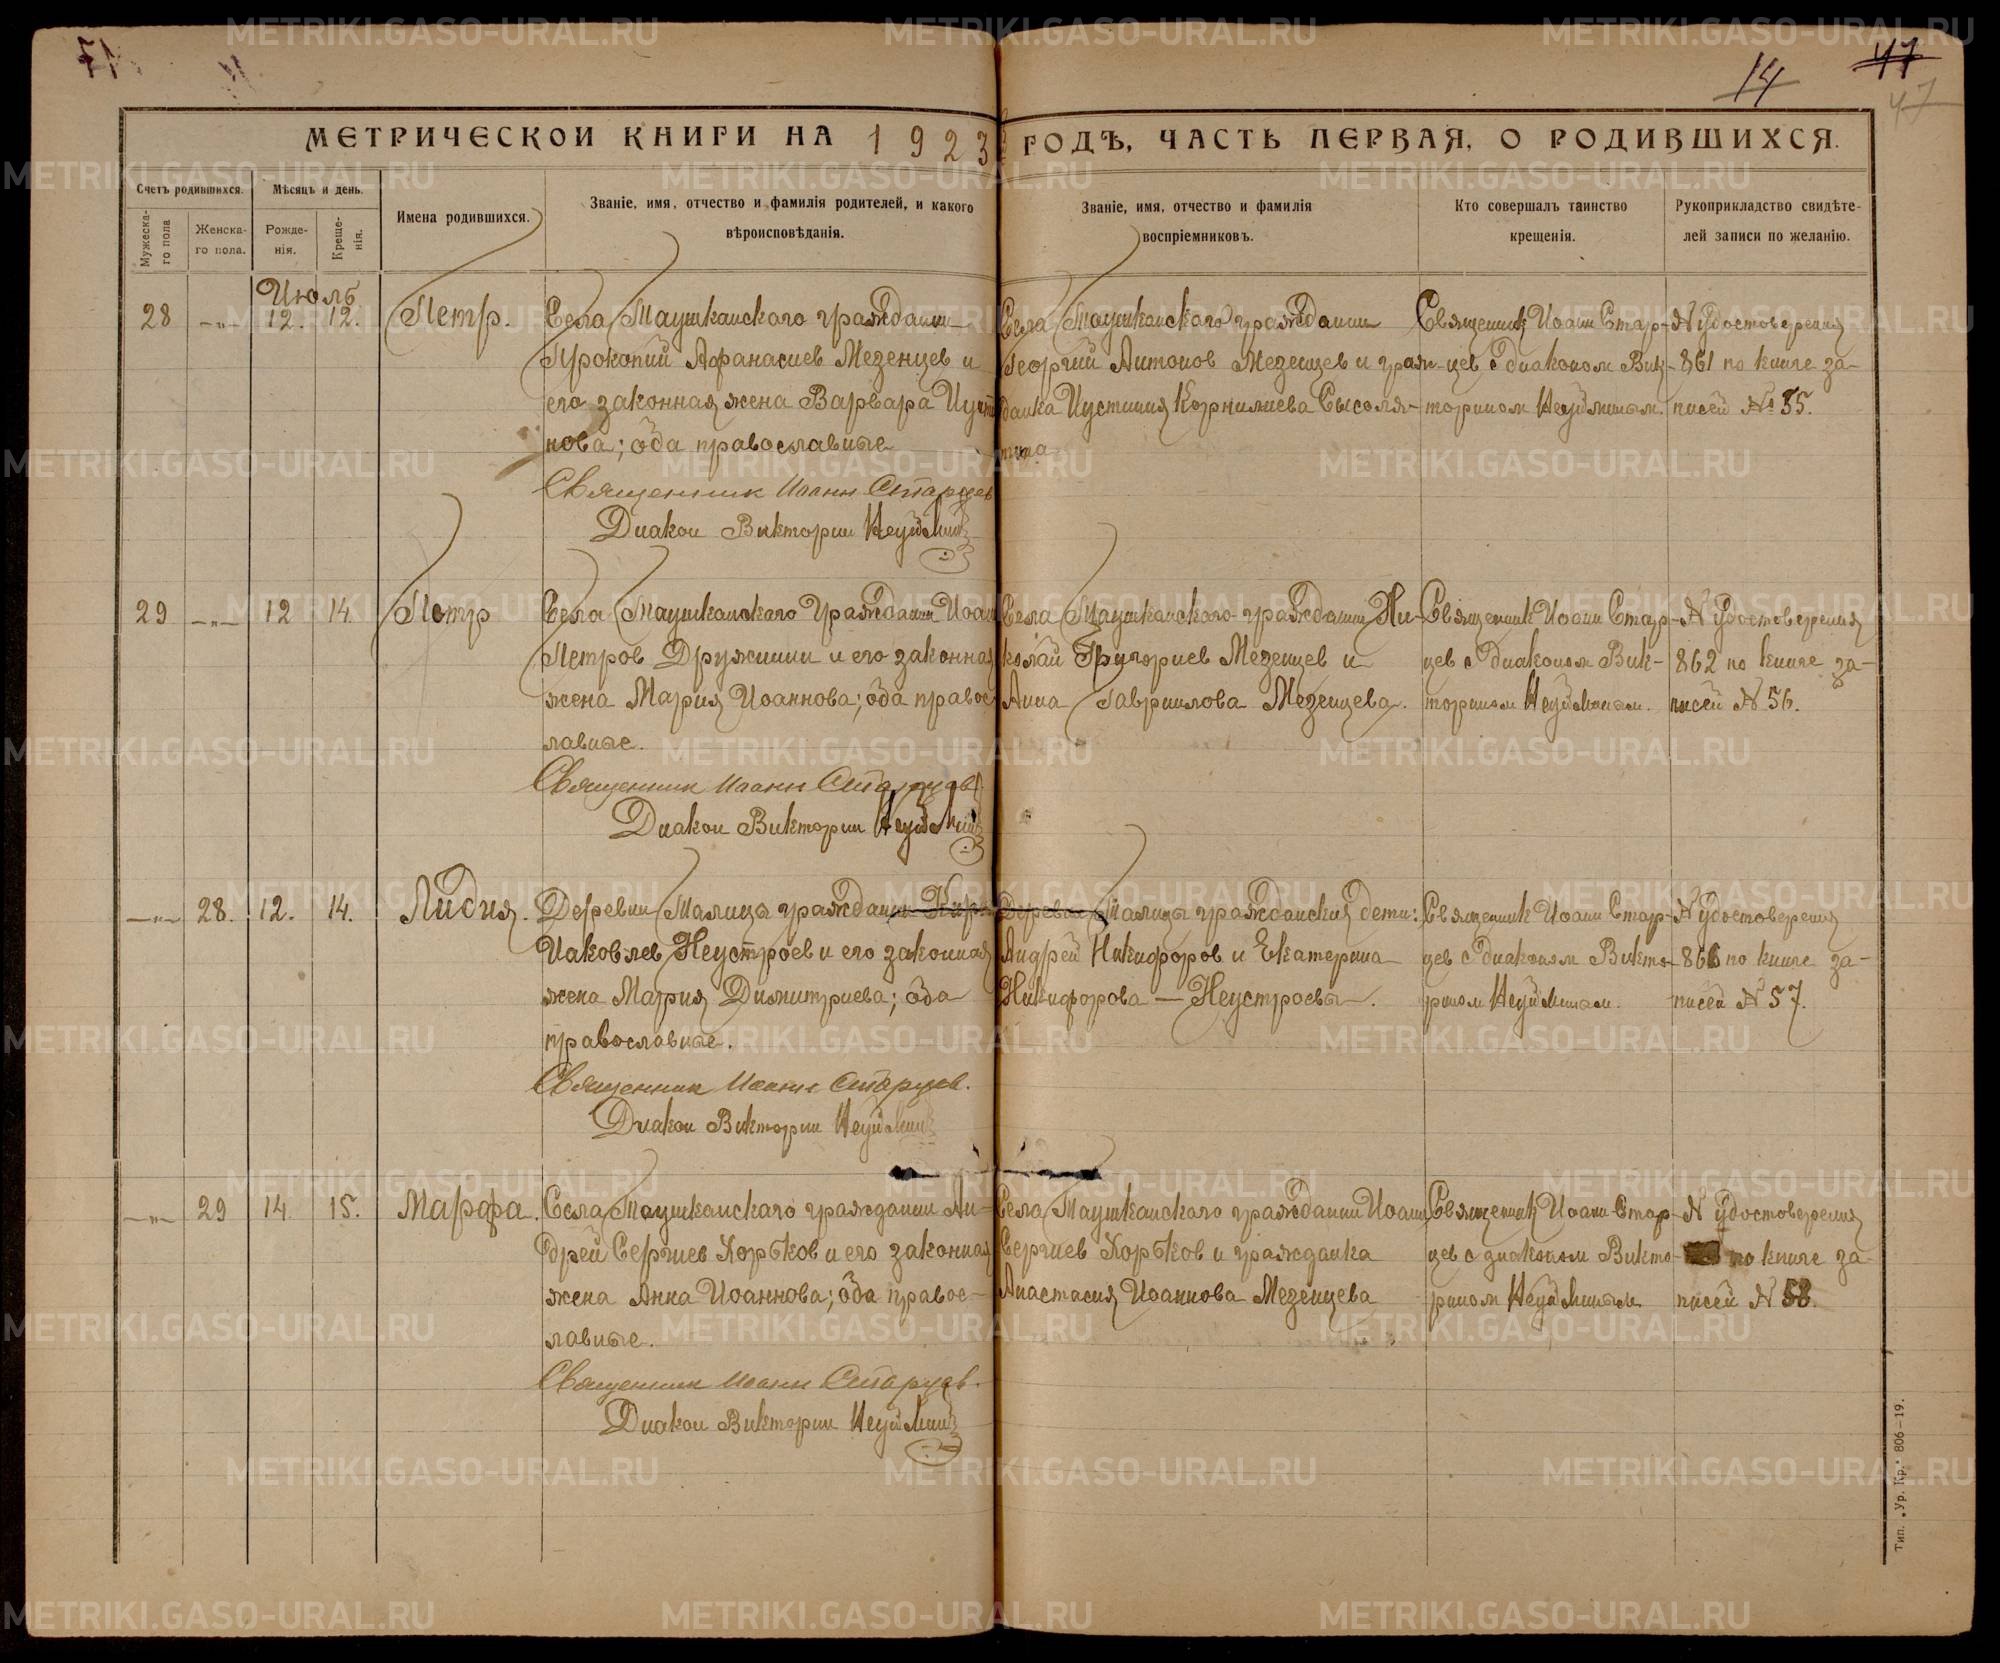 47
14
47
МЕТРИЧЕСКОЙ КНИГИ НА 1923 ГОДЪ, ЧАСТЬ ПЕРВАЯ, О РОДИВШИХСЯ.
Счетъ родившихся.
Мужеска-
го пола
Женска-
го пола.
Мѣсяцъ и день.
Рожде-
нія.
Креще-
нія.
Имена родившихся.
Званіе, имя, отчество и фамилія родителей, и какого
вѣроисповѣданія.
Званіе, имя, отчество и фамилія
воспріемниковъ.
Кто совершалъ таинство
крещенія.
Рукоприкладство свидѣте-
лей записи по желанію.
Июль
28 —"— 12. 12. Петр.
Села Таушканского гражданин
Прокопий Афанасиев Мезенцев и
его законная жена Варвара Иусти
нова; оба православные
Священник Иоанн Старцев
Диакон Викторин Неуймин
Села Таушканского гражданин
Георгий Антонов Мезенцев и граж-
данка Иустиния Корнилиева Сысоля-
тина
Священник Иоанн Стар-
цев с диаконом Вик-
торином Неуйминым.
N удостоверения
861 по книге за-
писей № 55.
29 —"— 12 14 Петр
Села Таушканского гражданин Иоан
Петров Дружинин и его законная
жена Мария Иоаннова; оба правос
лавные.
Священник Иоанн Старцев
Диакон Викторин Неуймин
Села Таушканского гражданин Ни-
колай Григориев Мезенцев и
Анна Гавриилова Мезенцева.
Священник Иоанн Стар-
цев с диаконом Вик-
торином Неуйминым.
N удостоверения
862 по книге за-
писей N 56.
—"— 28. 12. 14. Лидия.
Деревни Талицы гражданин
Иаковлев Неустроев и его законная
жена Мария Димитриева; оба
православные.
Священник Иоанн Старцев.
Диакон Викторин Неуймин
Деревни Талицы гражданския дети:
Андрей Никифоров и Екатерина
Никифорова — Неустроевы.
Священник Иоанн Стар-
цев с диаконом Викто-
рином Неуйминым.
N удостоверения
по книге за-
писей N 57.
—"— 29 14 15. Марфа.
Села Таушканского гражданин Ан-
дрей Сергиев Хорьков и его законная
жена Анна Иоаннова; оба правос-
лавные.
Священник Иоанн Старцев.
Диакон Викторин Неуймин
Села Таушканского гражданин Иоанн
Сергиев Хорьков и гражданка
Анастасия Иоаннова Мезенцева
Священник Иоанн Стар-
цев с диаконом Викто-
рином Неуйминым
N удостоверения
по книге за-
писей N 58.
Тип. „Ур. Кр." 806—19.
METRIKI.GASO-URAL.RU